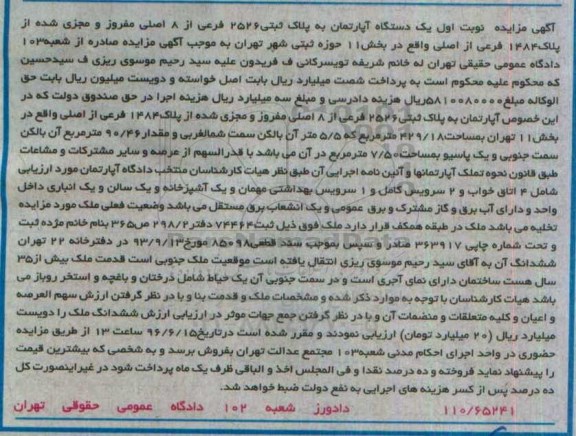 آگهی مزایده نوبت اول یک دستگاه آپارتمان به پلاک ثبتی۲۵۲۶ فرعی از ۸ اصلی مفروز و مجزی شده از
پلاک۱۴۸۴ فرعی از اصلی واقع در بخش۱۱ حوزه ثبتی شهر تهران به موجب آگهی مزایده صادره از شعبه۱۰۳
دادگاه عمومی حقیقی تهران له خانم شریفه تویسرکانی ف فریدون علیه سید رحیم موسوی ریزی ف سیدحسین
که محکوم علیه محکوم است به پرداخت شصت میلیارد ریال بابت اصل خواسته و دویست میلیون ریال بابت حق
الوکاله مبلغ۵۸۱۰۰۸۰۰۰۰ریال هزینه دادرسی و مبلغ سه میلیارد ریال هزینه اجرا در حق صندوق دولت که در
این خصوص آپارتمان به پلاک ثبتی۲۵۲۶ فرعی از ۸ اصلی مفروز و مجزی شده از پلاک۱۴۸۴ فرعی از اصلی واقع در
بخش۱۱ تهران بمساحت۴۲۹/۱۸ مترمربع که ۵/۵ متر آن بالکن سمت شمالغربی و مقدار۹۰/۴۶ مترمربع آن بالکن
سمت جنوبی و یک پاسیو بمساحت۷/۵۰ مترمربع در آن می باشد با قدرالسهم از عرصه و سایر مشترکات و مشاعات
طبق قانون نحوه تملک آپارتمانها و آئین نامه اجرایی آن طبق نظر هیات کارشناسان منتخب دادگاه آپارتمان مورد ارزیابی
شامل ۴ اتاق خواب و ۲ سرویس کامل و ۱ سرویس بهداشتی مهمان و یک آشپزخانه و یک سالن و یک انباری داخل
واحد و دارای آب برق و گاز مشترک و برق عمومی و یک انشعاب برق مستقل می باشد وضعیت فعلی ملک مورد مزایده
تخلیه می باشد ملک در طبقه همکف قرار دارد ملک فوق ذیل ثبت۷۴۴۶۴ دفتر۲۹۸/۲ ص۳۶۵ بنام خانم مژده ثبت
و تحت شماره چاپی ۳۶۳۹۱۷ صادر و سپس بموجب سند قطعی۸۵۰۹۸ مورخ۹۳/۹/۱۳ در دفترخانه ۲۲ تهران
ششدانگ آن به آقای سید رحیم موسوی ریزی انتقال یافته است موقعیت ملک جنوبی است قدمت ملک بیش از۳۵
سال هست ساختمان دارای نمای آجری است و در سمت جنوبی آن یک حیاط شامل درختان و باغچه و استخر روباز می
باشد هیات کارشناسان با توجه به موارد ذکر شده و مشخصات ملک و قدمت بنا و با در نظر گرفتن ارزش سهم العرصه
و اعیان و کلیه متعلقات و منضمات آن و با در نظر گرفتن جمع جهات موثر در ارزیابی ارزش ششدانگ ملک را دویست
میلیارد ریال (۲۰ میلیارد تومان) ارزیابی نمودند و مقرر شده است درتاریخ۹۶/۶/۱۵ ساعت ۱۳ از طریق مزایده
حضوری در واحد اجرای احکام مدنی شعبه۱۰۳ مجتمع عدالت تهران بفروش برسد و به شخصی که بیشترین قیمت
را پیشنهاد نماید فروخته و ده درصد نقدا و فی المجلس اخذ و الباقی ظرف یک ماه پرداخت شود در غیراینصورت کل
ده درصد پس از کسر هزینه های اجرایی به نفع دولت ضبط خواهد شد.
۱۱۰/۶۵۲۴۱ دادورز شعبه ۱۰۲ دادگاه عمومی حقوقی تهران